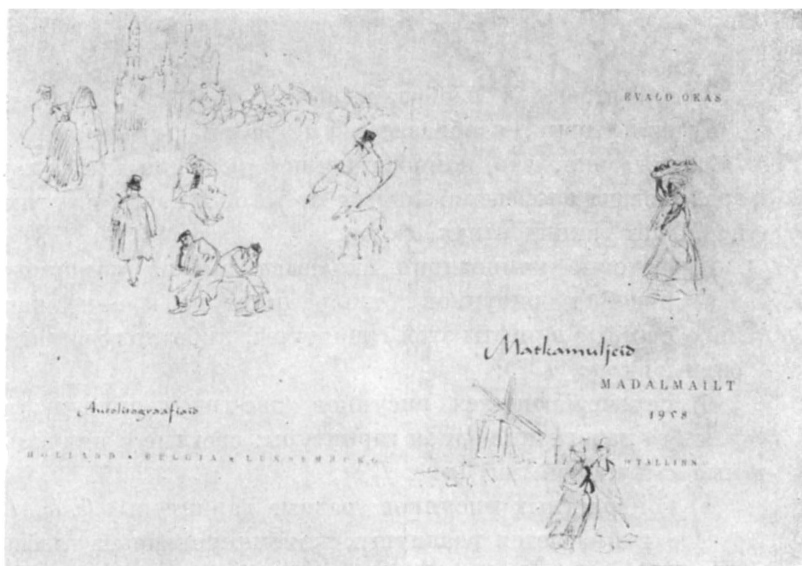 EVALD OKAS
Matkamuljeid
MADALMAILT
1958
Autolitograafiaid
HOLLAND • BELGIA • LUKSEMBURG
TALLINN